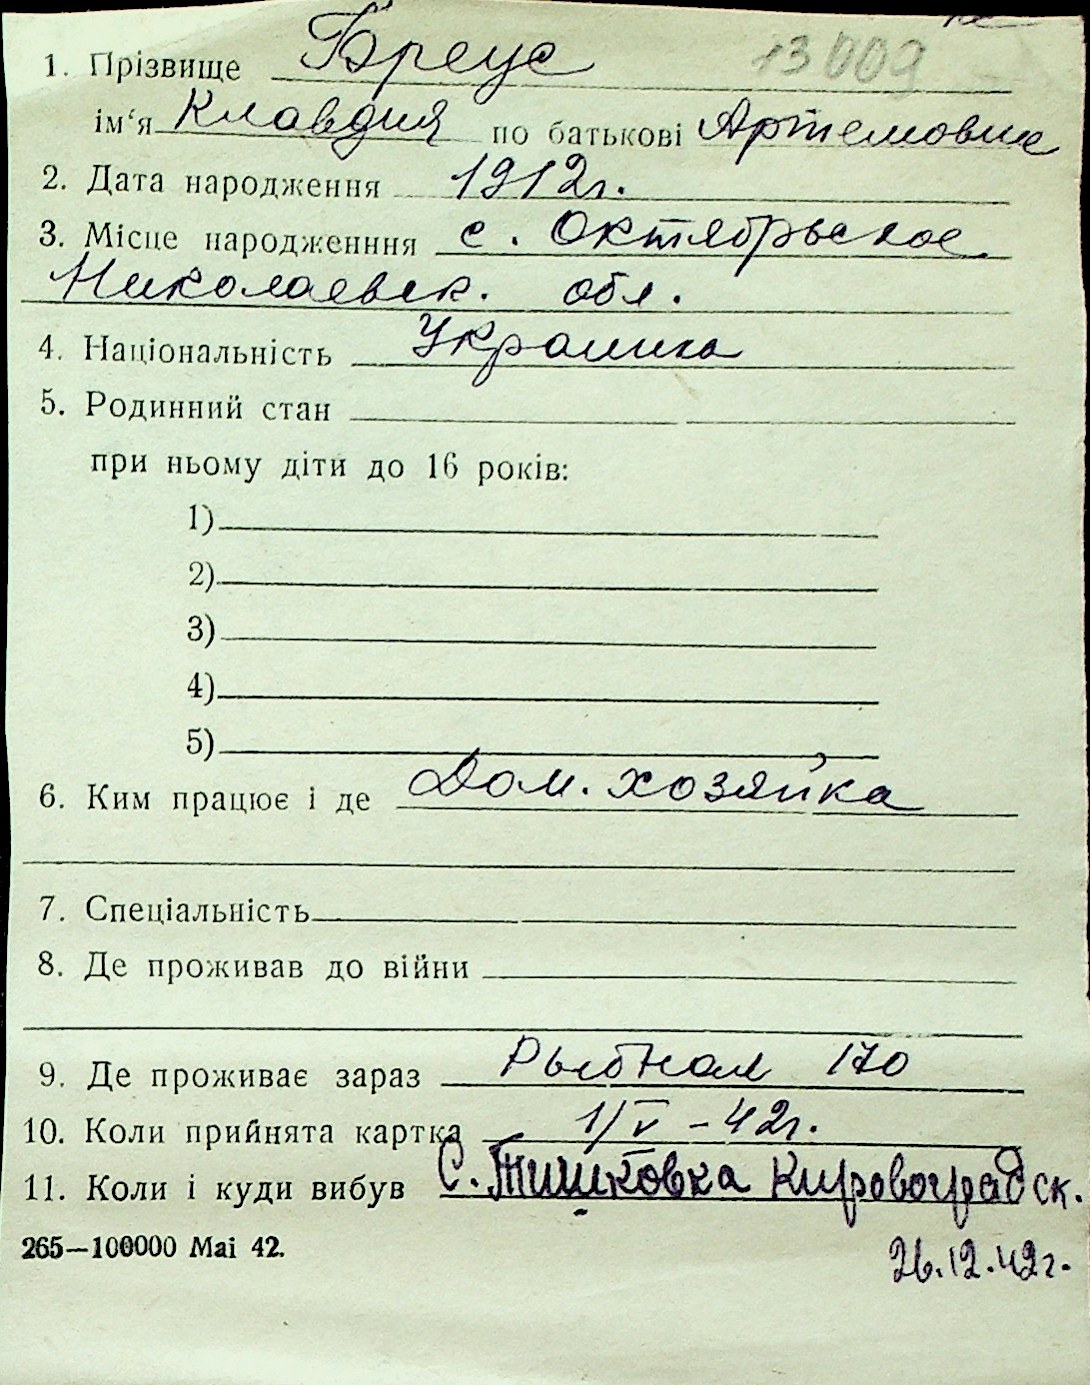 1. Прізвище Бреус 13009
ім'я Клавдия по батькові Артемовна
2. Дата народження 1912г.
3. Місце народженння с. Октябрьское
Николаевск. обл.
4. Національність Украинка
5. Родинний стан
при ньому діти до 16 років:
1)
2)
3)
4)
5)
6. Ким працює і де Дом. хозяйка
7. Спеціальність
8. Де проживав до війни
9. Де проживає зараз Рыбная 170
10. Коли прийнята картка 1/V - 42г.
11. Коли і куди вибув С. Тишковка Кировоградск.
265—100000 Mai 42. 26.12.42г.